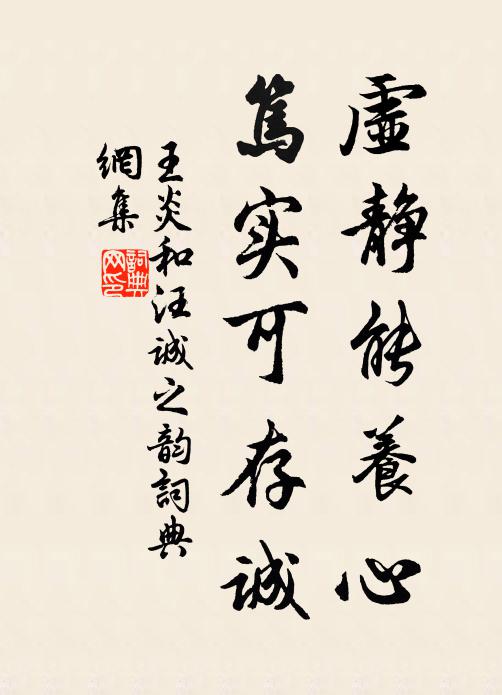 虛静能養心
篤实可存诚
王炎和汪诚之韵詞典
網集
詞典
网印